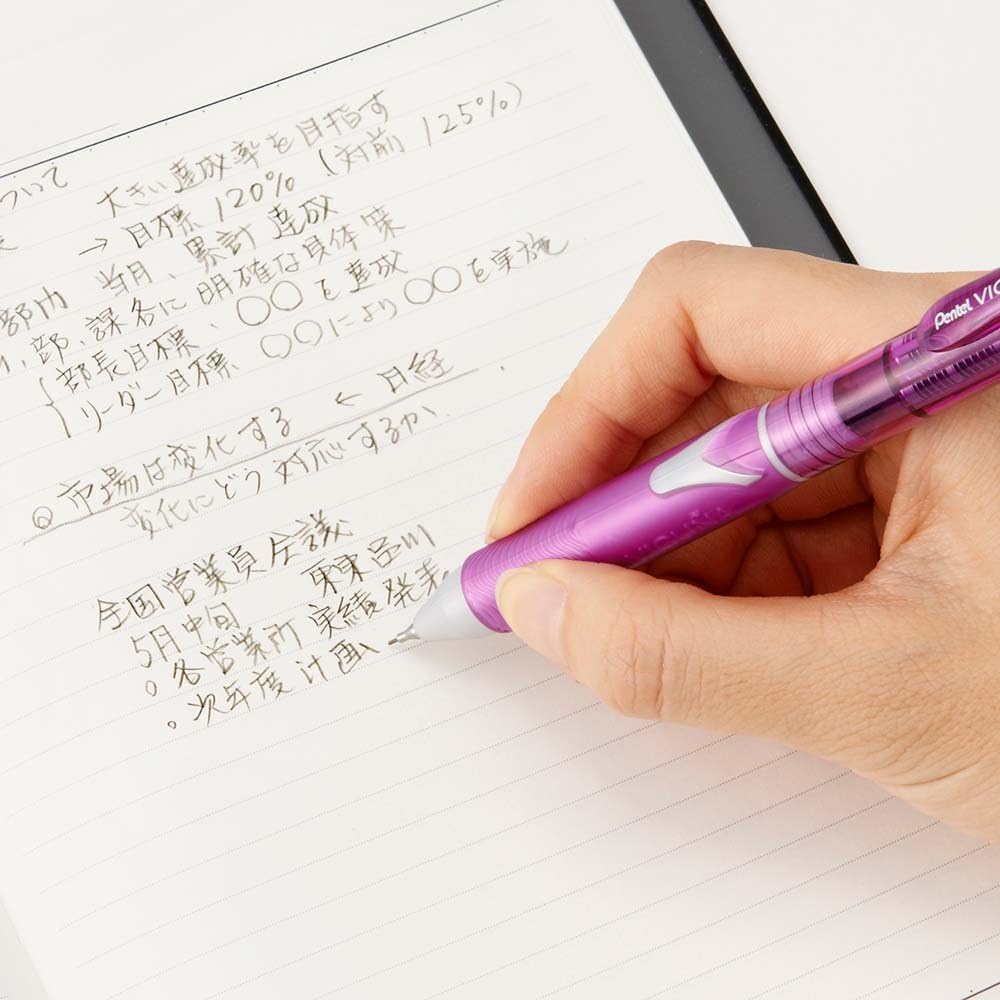 ついて
大きい達成率を目指す
→ 目標 120% (対前 125%)
部内 当月、累計達成
部、課名に明確な具体策
部長目標、〇〇を達成
リーダー目標 〇〇により〇〇を実施
◎市場は変化する ← 日経
変化にどう対応するか、
全国営業員会議
5月中旬 東京品川
。各営業所 実績発表
。次年度計画
Pentel VIC